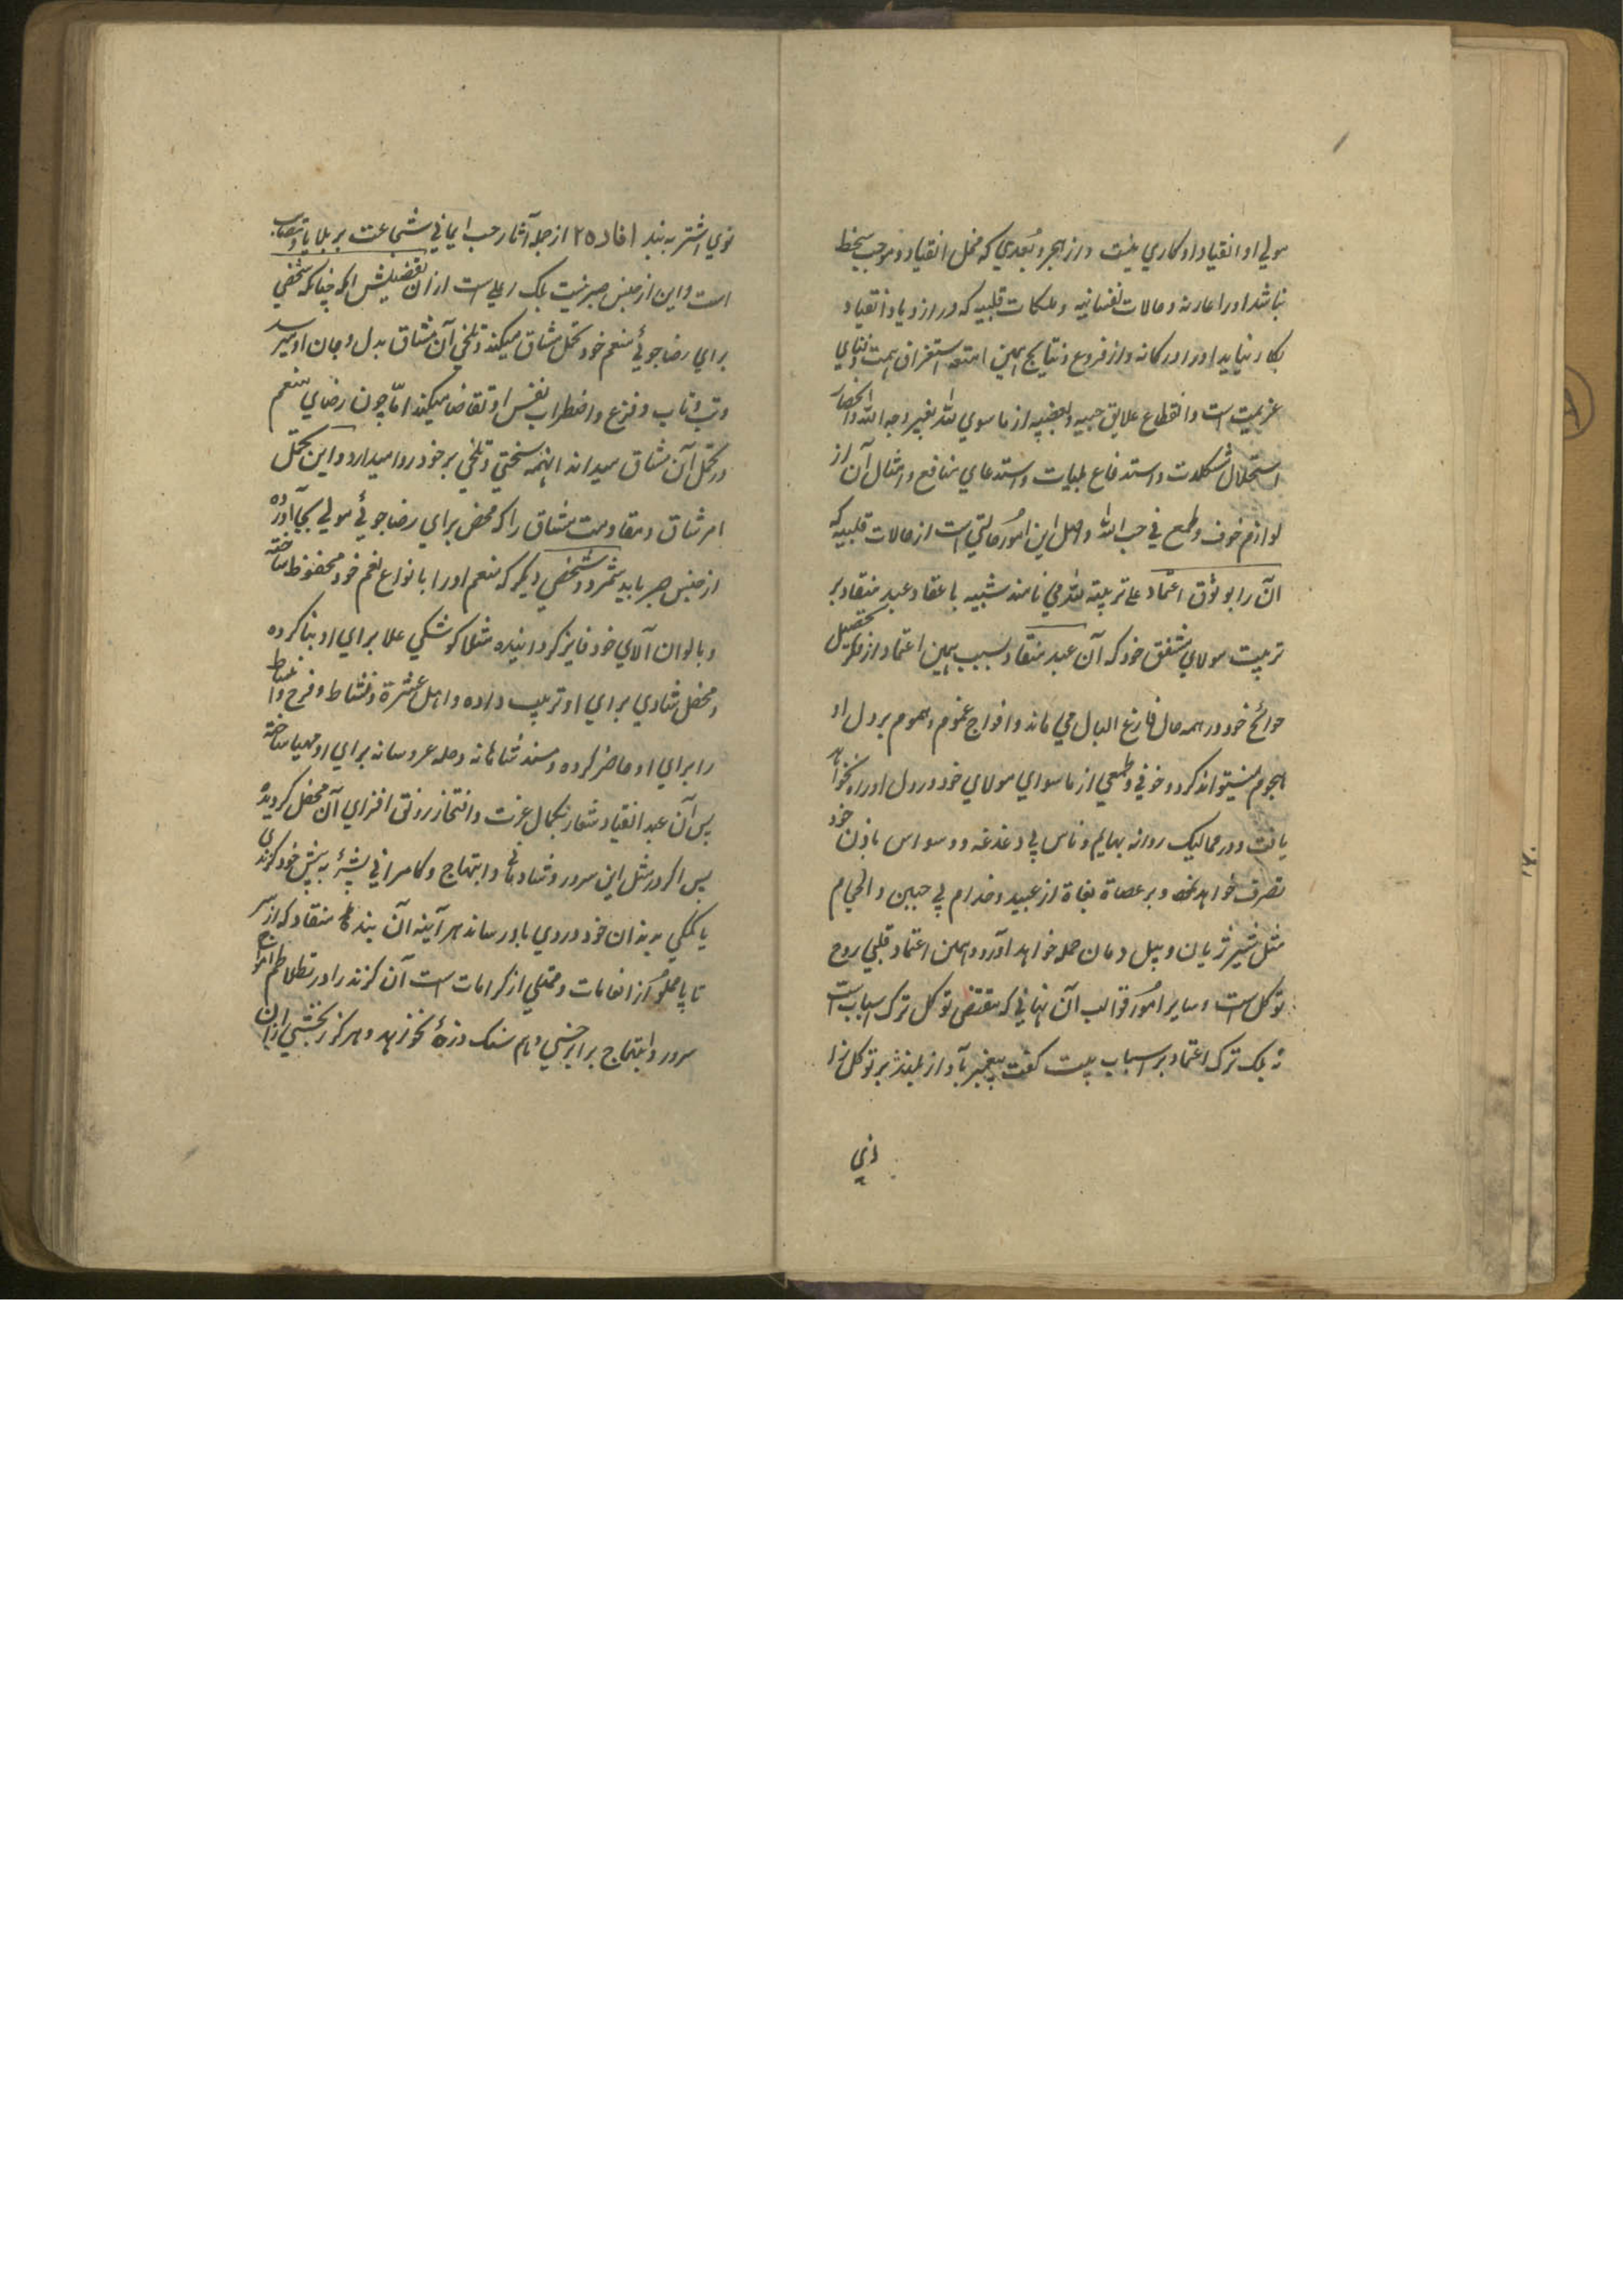 مولي او انقياد او كاري نيست و از هجر و بُعدي كه مخل انقياد و موجب سخط
نباشد او را عار نه و حالات نفسانيه و ملكات قلبيه كه در ازدياد انقياد
بكار نيايد او را در كار نه و از فروع و نتايج همين استغراق همت و فناي
عزيمت است و انقطاع علايق حبيه و بغضيه از ما سوي الله بغير وجه الله و انحصار
استحلال مشكلات و استدفاع بليات و استدعاي منافع و امثال آن از
لوازم خوف و طمع في حب الله و اصل اين امُور حالتي است از حالات قلبيه كه
آن را بوثوق و اعتماد علي تربيته الله مي نامند شبيه باعتماد عبد منقاد بر
تربيت مولاي مشفق خود كه آن عبد منقاد بسبب همين اعتماد از فكر تحصيل
حوائج خود در همه حال فارغ البال مي ماند و افواج غموم و هموم بر دل او
هجوم نميتواند كرد و خوفي و طمعي از ماسواي مولاي خود در دل او راه نخواهد
يافت و در مماليك روانه بهايم و ناس بي دغدغه و وسواس باذن خود
تصرف خواهد نمود و بر عصاة بغاة از عبيد و خدام بي جبين و الجام
مثل شير ژيان و پيل دمان حمله خواهد آورد و همين اعتماد قلبي روح
توكل است و ساير امُور قوالب آن نه آني كه مقتضي توكل ترك اسباب است
نه بلك ترك اعتماد بر اسباب بيت گفت پيغمبر بآواز بلند بر توكل زا
نوي
نوي اشتر به بند افاد ٢٥ از جمله آثار حب ايماني شجاعت بر بلايا و مصايب
است و اين از جنس صبر نيست بلك اعلي است از آن تفصيلش آنكه چنانكه شخصي
براي رضا جوئي منعم خود تحمل مشاق ميكند و تلخي آن مشاق بدل و جان او ميرسد
و تب و تاب و فزع و اضطراب نفس او تقاضا ميكند امّا چون رضاي منعم
در تحمل آن مشاق ميداند اينهمه سختي و تلخي بر خود روا ميدارد و اين تحمل
امر شاق و مقاومت مشاق را كه محض براي رضا جوئي مولي بجا آورده
از جنس صبر بايد شمرد و شخصي ديگر كه منعم او را بانواع نعم خود محفوظ ساخته
و بالوان آلاي خود فايز گردانيده مثلا كوشكي علا براي او بنا كرده
و محفل شادي براي او ترتيب داده و اهل عشرة و نشاط و فرح و انبساط
را براي او حاضر كرده و مسند شاهانه و حله عروسانه براي او مهيا ساخته
پس آن عبد انقياد شعار بكمال عزت و افتخار رونق افزاي آن محفل گرديده
پس اگر در مثل اين سرور و شادماني و ابتهاج و كامراني پشهٔ به نيش خود گزندي
يا ككي بدندان خود دردي باو رساند هر آينه آن بندهٔ منقاد كه از سر
تا پا مملُو از انعامات و ممتلي از كرامات است آن گزند را در تلاطم امواج
سرور و ابتهاج برابر خسي و هم سنگ ذرهٔ نخواهد و هرگز رنجشي از آن